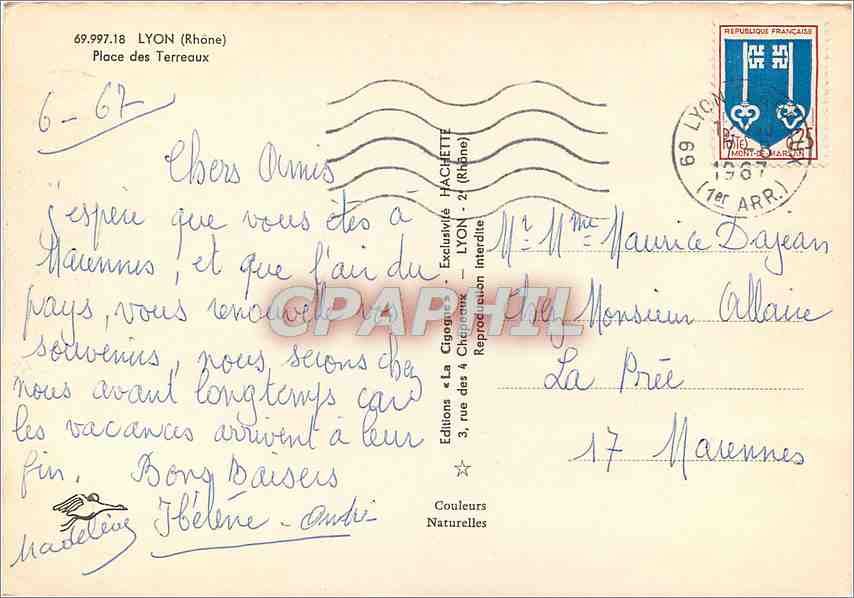 69.997.18 LYON (Rhône)
Place des Terreaux
6 - 67
Chers Amis
J'espère que vous êtes à
Marennes, et que l'air du
pays, vous renouvelle vos
souvenirs, nous serons chez
nous avant longtemps car
les vacances arrivent à leur
fin. Bons Baisers
Madeleine Hélène - André
Editions « La Cigogne » - Exclusivité HACHETTE
3, rue des 4 Chapeaux — LYON - 2e (Rhône)
Reproduction Interdite
Couleurs
Naturelles
REPUBLIQUE FRANÇAISE
POSTES
0,25
MONT-DE-MARSAN
69 LYON
1967
(1er ARR.)
Mr Mme Maurice Dajean
Chez Monsieur Allaire
La Prée
17 Marennes
CPAPHIL